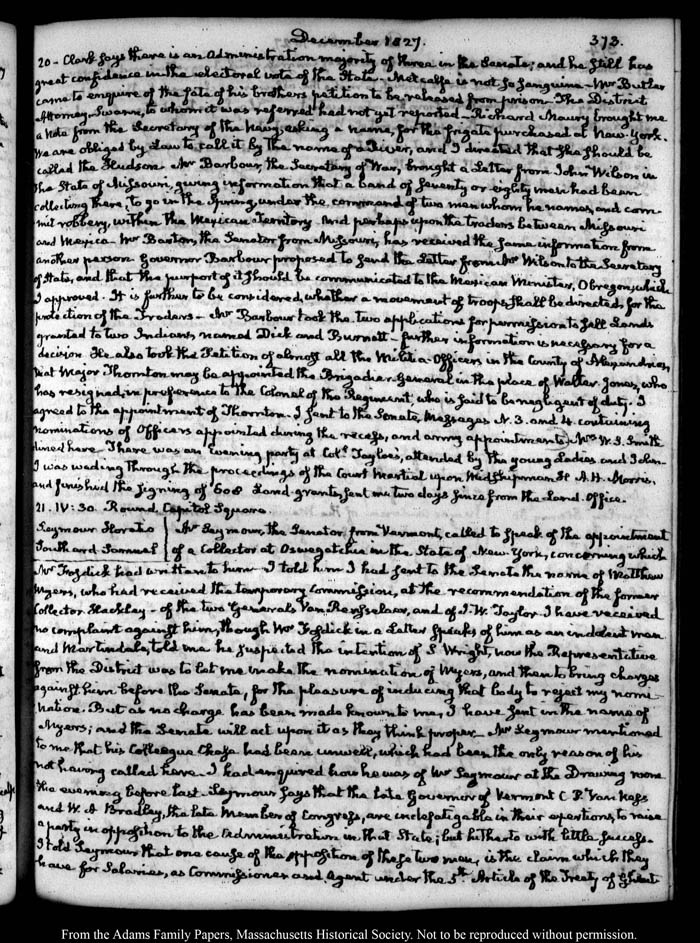 December 1827.
373.
20 - Clark says there is an Administration majority of three in the Senate; and he still has
great confidence in the electoral vote of the State - Metcalfe is not so sanguine - Mr Butler
came to enquire of the fate of his brother's petition to be released from prison - The District
Attorney Swann, to whom it was referred had not yet reported - Richard Maury brought me
a Note from the Secretary of the Navy, asking a name, for the frigate purchased at New-York.
We are obliged by Law to call it by the name of a River, and I directed that she should be
called the Hudson - Mr Barbour, the Secretary of War, brought a Letter from John Wilson in
the State of Missouri, giving information that a band of seventy or eighty men had been
collecting there, to go in the Spring, under the command of two men whom he names, and com-
mit robbery, within the Mexican Territory and perhaps upon the traders between Missouri
and Mexico - Mr Barton, the Senator from Missouri, has received the same information from
another person - Governor Barbour proposed to send the Letter from Mr Wilson to the Secretary
of State, and that the purport of it should be communicated to the Mexican Minister, Obregon; which
I approved - It is further to be considered, whether a movement of troops shall be directed, for the
protection of the Traders - Mr Barbour took the two applications for permission to sell Lands
granted to two Indians, named Dick and Burnett - further information is necessary for a
decision. He also took the Petition of almost all the Militia Officers in the County of Alexandria,
that Major Thornton may be appointed the Brigadier-General in the place of Walter Jones, who
has resigned, in preference to the Colonel of the Regiment, who is said to be negligent of duty. I
agreed to the appointment of Thornton - I sent to the Senate Messages N. 3. and 4. containing
nominations of Officers appointed during the recess, and army appointments - Mrs W. S. Smith
dined here. There was an evening party at Col. Tayloe's, attended by the young Ladies and John -
I was wading through the proceedings of the Court Martial upon Midshipman H. A. H. Morris,
and finished the signing of 608 Land-grants, sent me two days since from the Land-Office.
21. IV: 30. Round, Capitol Square
Seymour Horatio | Mr Seymour, the Senator from Vermont, called to speak of the appointment
Southard Samuel | of a Collector at Oswegatchie in the State of New-York, concerning which
Mr Fosdick had written to him - I told him I had sent to the Senate the name of Matthew
Myers, who had received the temporary Commission, at the recommendation of the former
Collector Hackley - of the two Generals Van Rensselaer, and of J. W. Taylor - I have received
no complaint against him, though Mr Fosdick in a Letter speaks of him as an indolent man
and Martindale, told me he suspected the intention of S. Wright, now the Representative
from the District was to let me make the nomination of Myers, and then to bring charges
against him before the Senate, for the pleasure of inducing that body to reject my nomi-
nation. But as no charge has been made known to me, I have sent in the name of
Myers; and the Senate will act upon it as they think proper - Mr Seymour mentioned
to me that his Colleague Chase had been unwell, which had been the only reason of his
not having called here - I had enquired how he was of Mr Seymour at the Drawing room
the evening before last - Seymour says that the late Governor of Vermont C. P. Van Ness
and W. A Bradley, the late Member of Congress, are indefatigable in their exertions, to raise
a party in opposition to the Administration in that State; but hitherto with little success -
I told Seymour that one cause of the opposition of these two men, is the claim which they
have for Salaries, as Commissioner and Agent under the 5th Article of the Treaty of Ghent
From the Adams Family Papers, Massachusetts Historical Society. Not to be reproduced without permission.